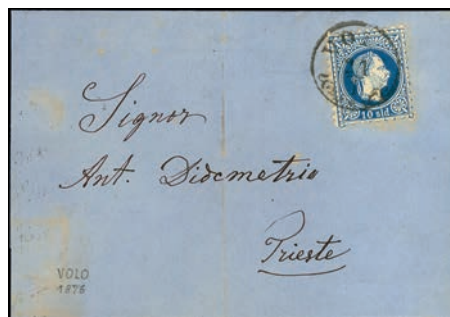 VO
10 sld
Signor
Ant. Diocmetrio
Trieste
VOLO
1876